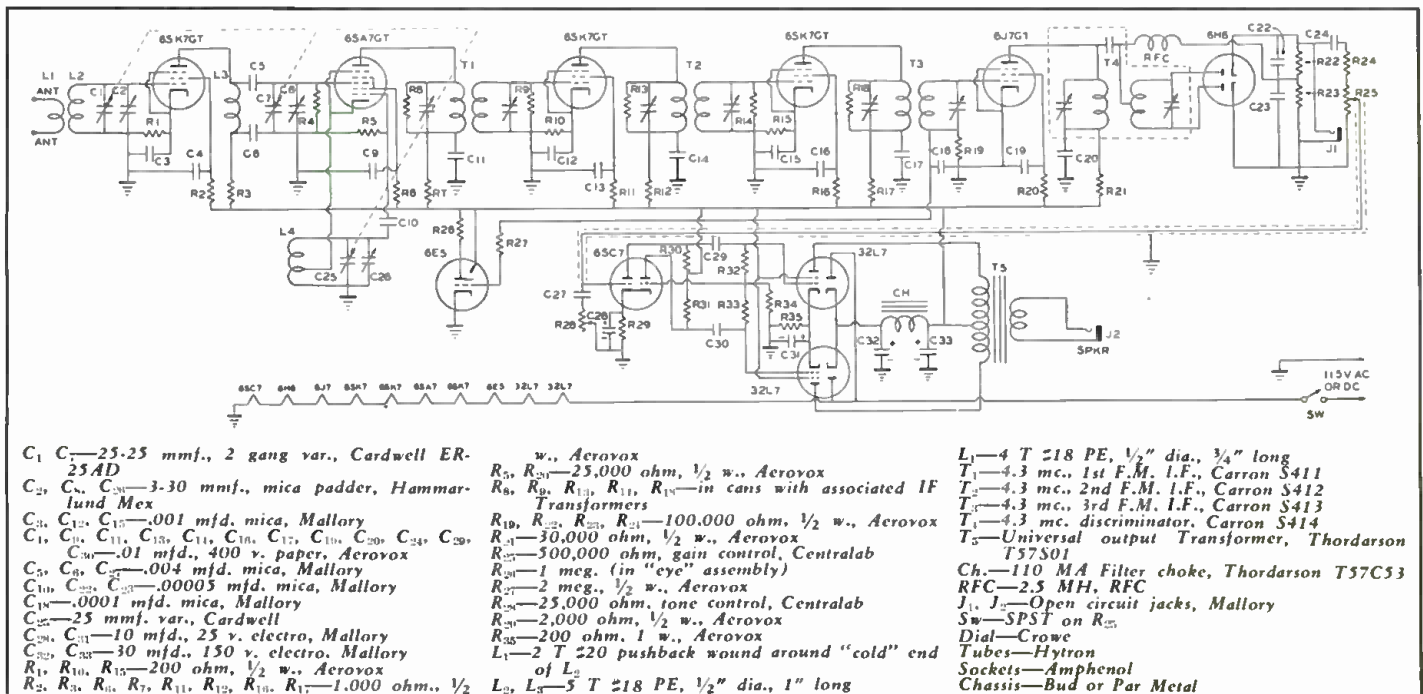 6SK7GT 6SA7GT 6SK7GT 6SK7GT 6J7GT 6H6 C22 C24
L1 L2 L3 C5 T1 T2 T3 T4 RFC R22 R24
ANT C1 C2 C7 C8 R8 R9 R13 R14 R18 R23 R25
ANT R1 R4 R5 R10 R15 R19 C23
C3 C4 C6 C9 C11 C12 C13 C14 C15 C16 C17 C18 C19 C20 J1
R2 R3 R6 R7 R11 R12 R16 R17 R20 R21
C10
L4 R26 R27
6E5 6SC7 R30 C29 R32 32L7 T5
C25 C26 C27 R31 R33 R34 CH
R28 C28 R29 C30 R35 C31 C32 C33 J2
SPKR
32L7
6SC7 6H6 6J7 6SK7 6SK7 6SA7 6SK7 6E5 32L7 32L7
115V AC
OR DC
SW
C1 C7—25-25 mmf., 2 gang var., Cardwell ER-
25AD
C2, C8, C26—3-30 mmf., mica padder, Hammar-
lund Mex
C3, C12, C15—.001 mfd. mica, Mallory
C4, C9, C11, C13, C14, C16, C17, C19, C20, C24, C29,
C30—.01 mfd., 400 v. paper, Aerovox
C5, C6, C27—.004 mfd. mica, Mallory
C10, C22, C23—.00005 mfd. mica, Mallory
C18—.0001 mfd. mica, Mallory
C25—25 mmf. var., Cardwell
C28, C31—10 mfd., 25 v. electro, Mallory
C32, C33—30 mfd., 150 v. electro, Mallory
R1, R10, R15—200 ohm, ½ w., Aerovox
R2, R3, R6, R7, R11, R12, R16, R17—1,000 ohm., ½
w., Aerovox
R5, R20—25,000 ohm, ½ w., Aerovox
R8, R9, R13, R14, R18—in cans with associated IF
Transformers
R19, R22, R23, R24—100,000 ohm, ½ w., Aerovox
R21—30,000 ohm, ½ w., Aerovox
R25—500,000 ohm, gain control, Centralab
R26—1 meg. (in "eye" assembly)
R27—2 meg., ½ w., Aerovox
R28—25,000 ohm, tone control, Centralab
R29—2,000 ohm, ½ w., Aerovox
R35—200 ohm, 1 w., Aerovox
L1—2 T #20 pushback wound around "cold" end
of L2
L2, L3—5 T #18 PE, ½" dia., 1" long
L1—4 T #18 PE, ½" dia., ¾" long
T1—4.3 mc., 1st F.M. I.F., Carron S411
T2—4.3 mc., 2nd F.M. I.F., Carron S412
T3—4.3 mc., 3rd F.M. I.F., Carron S413
T4—4.3 mc. discriminator, Carron S414
T5—Universal output Transformer, Thordarson
T57S01
Ch.—110 MA Filter choke, Thordarson T57C53
RFC—2.5 MH, RFC
J1, J2—Open circuit jacks, Mallory
Sw—SPST on R25
Dial—Crowe
Tubes—Hytron
Sockets—Amphenol
Chassis—Bud or Par Metal